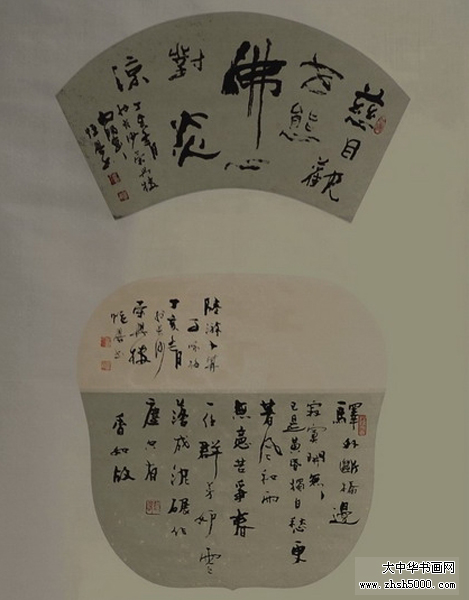 慈目觀
世態
佛心
對炎
涼
丁亥
驛外斷橋邊
寂寞開無主
已是黃昏獨自愁更
著風和雨
無意苦爭春
一任群芳妒零
落成泥碾作
塵只有
香如故
陸游卜算
子詠梅
丁亥
大中华书画网
www.zhsh5000.com